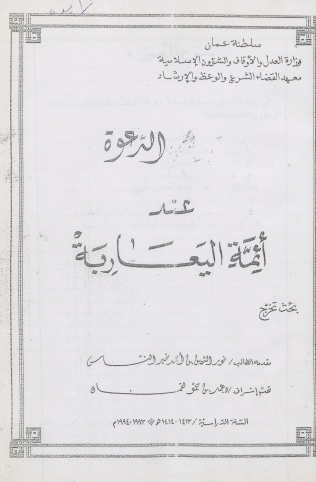 سلطنة عمان
وزارة العدل والأوقاف والشئون الإسلامية
معهد القضاء الشرعي والوعظ والإرشاد
الدعوة
عند
أئمة اليعاربة
بحث تخرج
مقدمه الطالب /
تحت إشراف /
السنة الدراسية / ١٤١٣-١٤١٤هـ ١٩٩٣-١٩٩٤م